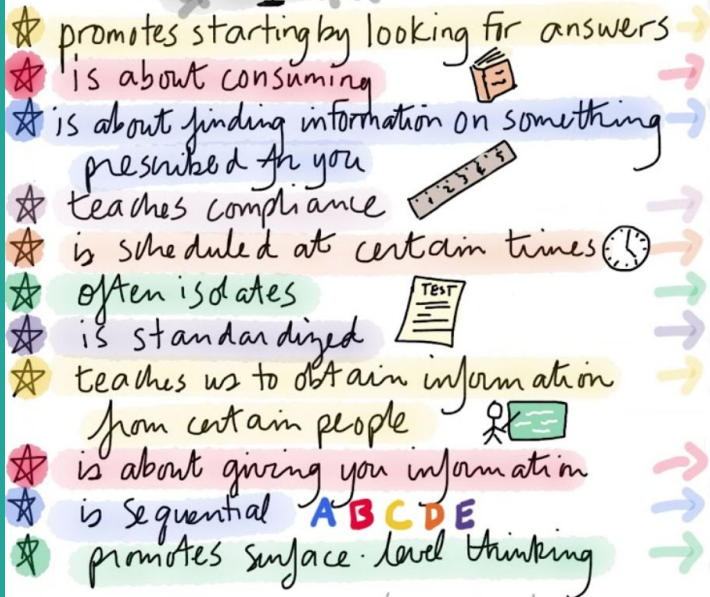 promotes starting by looking for answers
is about consuming
is about finding information on something
prescribed for you
1 2 3 4 5
teaches compliance
is scheduled at certain times
often isolates
TEST
is standardized
teaches us to obtain information
from certain people
is about giving you information
is sequential A B C D E
promotes surface-level thinking